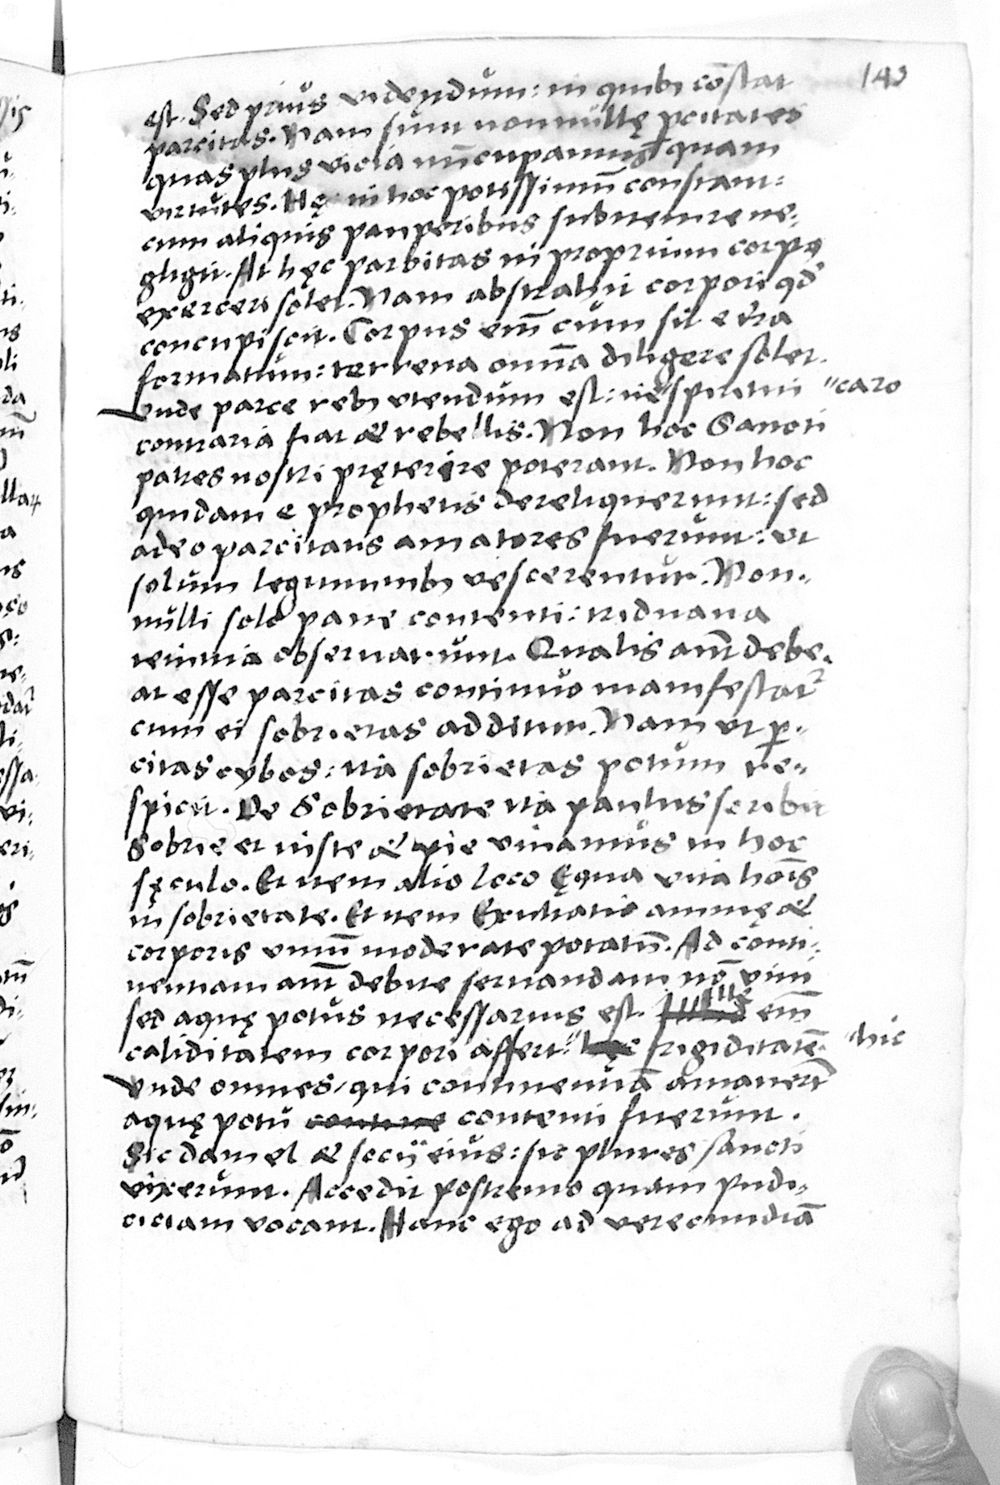 143
est. Sed prius videndum: in quibꝫ cōstat
parcitas. Nam sunt nonnullę pcitates
quas plus vicia nūcupamus quam
virtutes. Hę in hoc potissimū constant:
cum aliquis pauperibus subuenire ne-
gligit. At hęc parcitas in proprium corpꝰ
exerceri solet. Nam abstrahit corpori qd̓
concupiscit. Corpus em̄ cum sit e t̓ra
formatum: terrena omīa diligere solet.
Vnde parce rebꝫ vtendum est: ne " spiritui " caro
contraria fiat & rebellis. Non hoc Sancti
patres nostri pręterire poterant. Non hoc
quidam e prophetis dereliquerunt: sed
adeo parcitatis amatores fuerunt: vt
solum leguminibꝫ vescerentur. Non-
nulli solo pane contenti: triduana
ieiunia obseruarunt. Qualis aūt debe-
at esse parcitas continuo manifestat᷑
cum ei sobrietas additur. Nam vt ꝑ-
citas cybos: ita sobrietas potum re-
spicit. De Sobrietate ita paulus scribit
Sobrie et iuste & pie viuamus in hoc
sęculo. Et item alio loco Ęqua vita hoīs
in sobrietate. Et item Exultatio animę &
corporis vinū moderate potatū. Ad conti-
nentiam aūt debite seruandam nō vini
sed aquę potus necessarius est. Ille em̄
caliditatem corpori affert: " hęc frigiditatē. " hic
Vnde omnes, qui continentiā amauerūt
aquę potu contine contenti fuerunt.
Sic daniel & socij eius: sic plures sancti
vixerunt. Accedit postremo quam pudi-
ciciam vocant. Hanc ego ad verecundiā